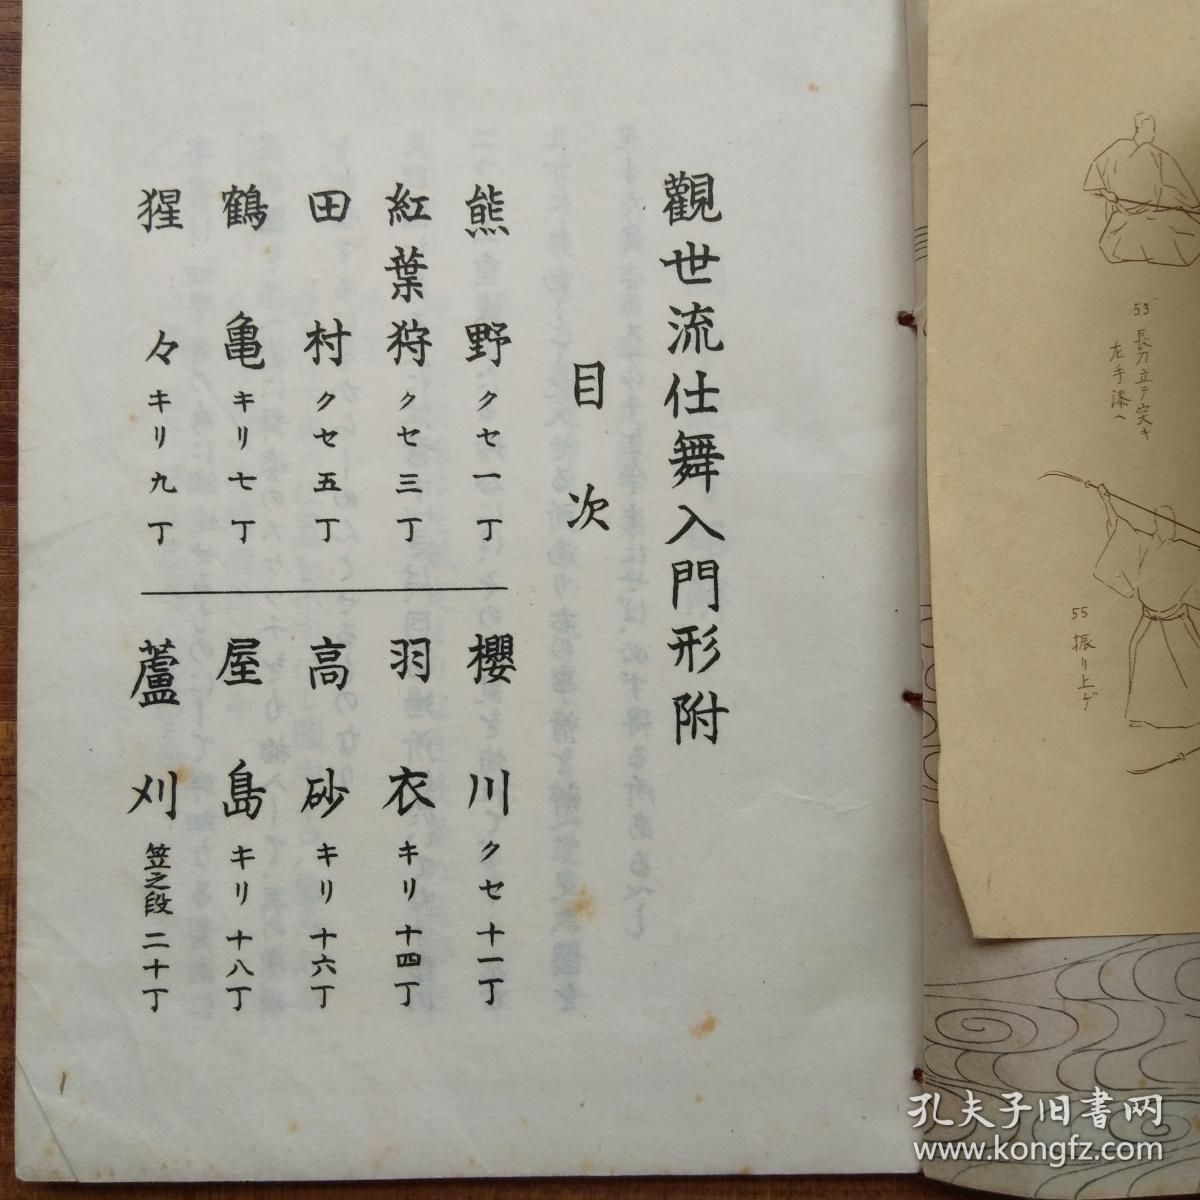 53 長刀立テ突キ
左手添ヘ
55 振り上ゲ
觀世流仕舞入門形附
目次
熊野クセ一丁
紅葉狩クセ三丁
田村クセ五丁
鶴亀キリ七丁
猩々キリ九丁
櫻川クセ十一丁
羽衣キリ十四丁
高砂キリ十六丁
屋島キリ十八丁
蘆刈笠之段二十丁
孔夫子旧书网
www.kongfz.com